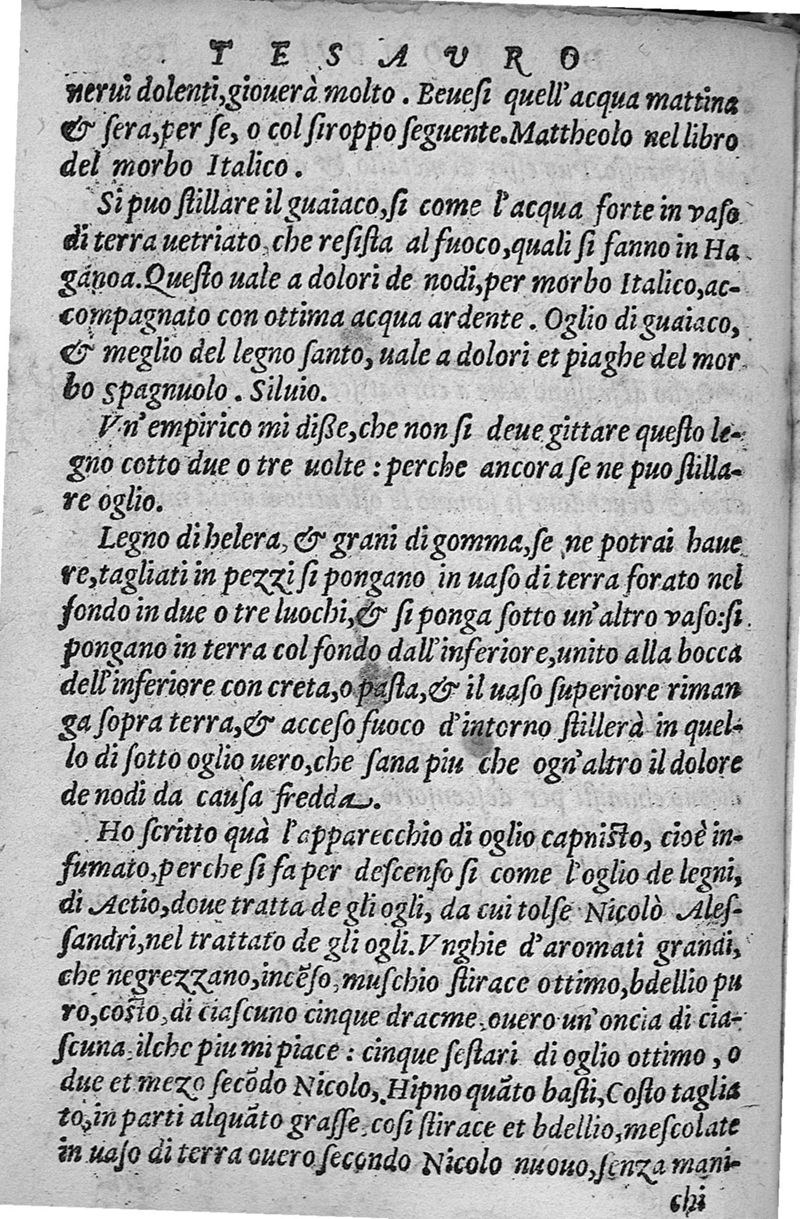 TESAVRO
nerui dolenti, giouerà molto. Beuesi quell'acqua mattina
& sera, per se, o col siroppo seguente. Mattheolo nel libro
del morbo Italico.
Si puo stillare il guaiaco, si come l'acqua forte in vaso
di terra uetriato, che resista al fuoco, quali si fanno in Ha
gánoa. Questo uale a dolori de nodi, per morbo Italico, ac-
compagnato con ottima acqua ardente. Oglio di guaiaco,
& meglio del legno santo, uale a dolori et piaghe del mor
bo spagnuolo. Siluio.
Vn'empirico mi disse, che non si deue gittare questo le-
gno cotto due o tre uolte: perche ancora se ne puo stilla-
re oglio.
Legno di helera, & grani di gomma, se ne potrai haue
re, tagliati in pezzi si pongano in uaso di terra forato nel
fondo in due o tre luochi, & si ponga sotto un'altro vaso: si
pongano in terra col fondo dall'inferiore, unito alla bocca
dell'inferiore con creta, o pasta, & il uaso superiore riman
ga sopra terra, & acceso fuoco d'intorno stillerà in quel-
lo di sotto oglio uero, che sana piu che ogn'altro il dolore
de nodi da causa fredda.
Ho scritto quà l'apparecchio di oglio capnisto, cioè in-
fumato, perche si fa per descenso si come l'oglio de legni,
di Aetio, doue tratta de gli ogli, da cui tolse Nicolò Ales-
sandri, nel trattato de gli ogli. Vnghie d'aromati grandi,
che negrezzano, incẽso, muschio stirace ottimo, bdellio pu
ro, costo, di ciascuno cinque dracme, ouero un'oncia di cia-
scuna, ilche piu mi piace: cinque sestari di oglio ottimo, o
due et mezo secõdo Nicolo, Hipno quãto basti, Costo taglia
to, in parti alquãto grasse, cosi stirace et bdellio, mescolate
in uaso di terra ouero secondo Nicolo nuouo, senza mani-
chi